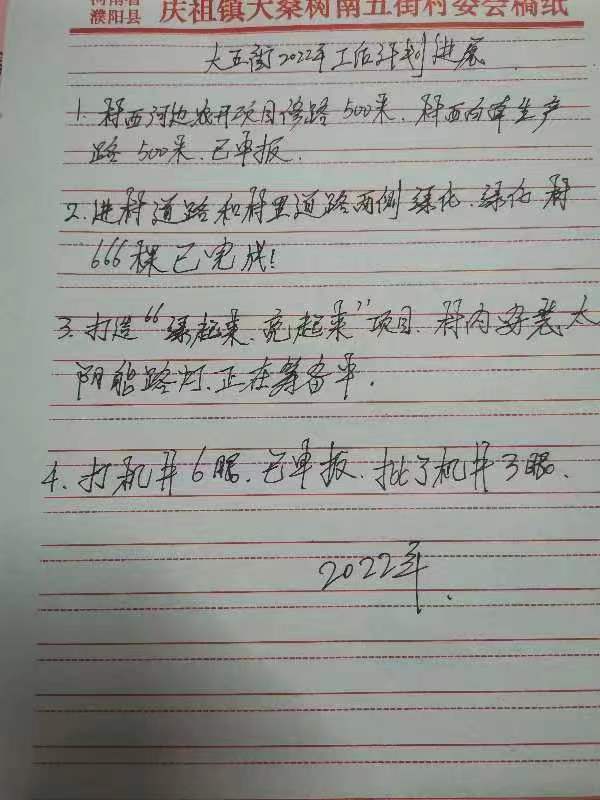 河南省
濮阳县
庆祖镇大桑树南五街村委会稿纸
大五街2022年工作计划进展
1. 村西河边农开项目修路500米.村西向南生产
路500米.已申报.
2.进村道路和村里道路两侧绿化.绿化树
666棵已完成!
3.打造“绿起来.亮起来”项目.村内安装太
阳能路灯.正在筹备中.
4.打机井6眼.已申报.批了机井3眼.
2022年.